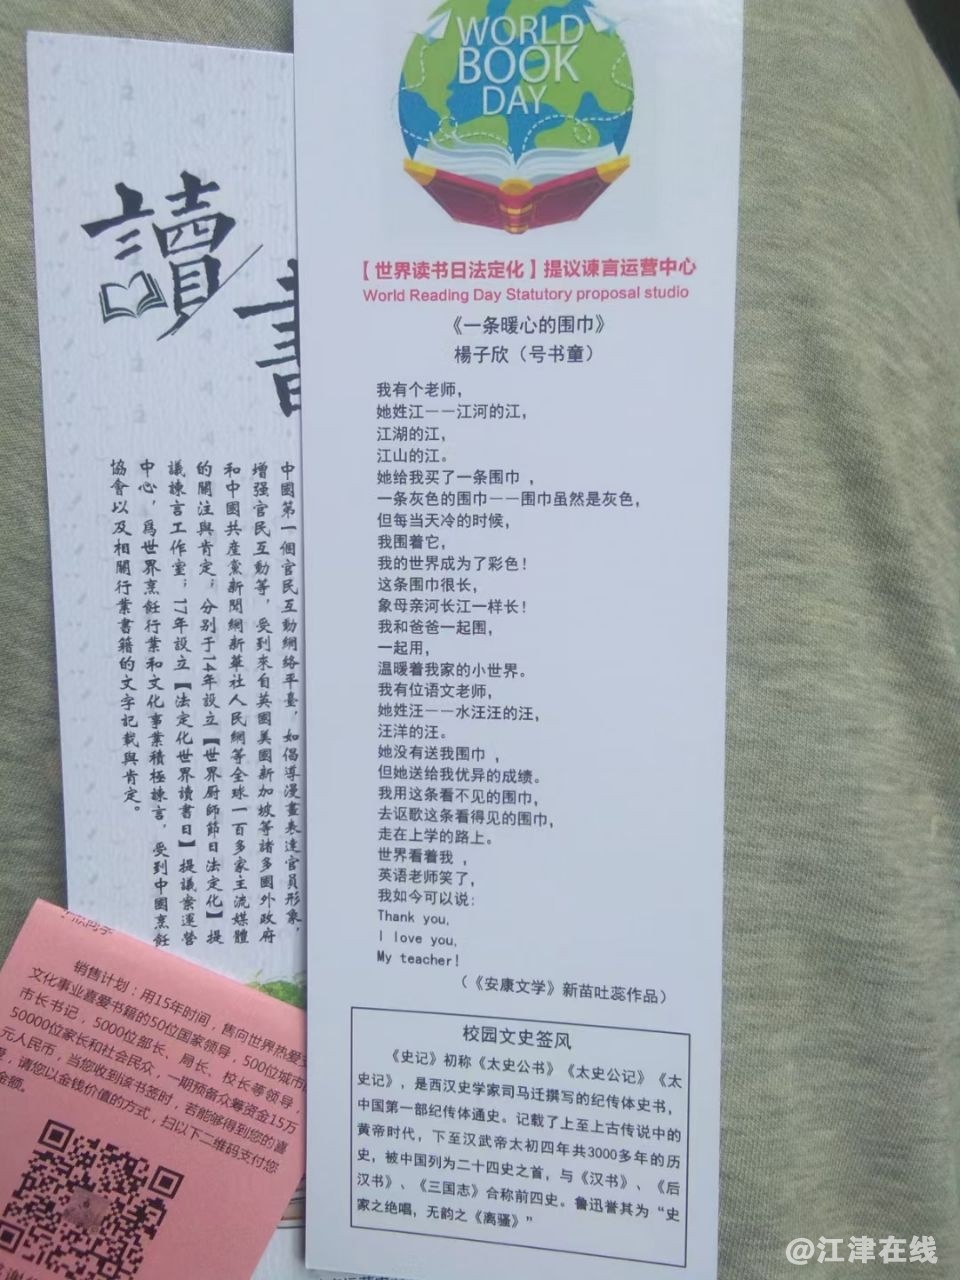 WORLD
BOOK
DAY
【世界读书日法定化】提议谏言运营中心
World Reading Day Statutory proposal studio
《一条暖心的围巾》
楊子欣（号书童）
我有个老师，
她姓江——江河的江，
江湖的江，
江山的江。
她给我买了一条围巾，
一条灰色的围巾——围巾虽然是灰色，
但每当天冷的时候，
我围着它，
我的世界成为了彩色！
这条围巾很长，
象母亲河长江一样长！
我和爸爸一起围，
一起用，
温暖着我家的小世界。
我有位语文老师，
她姓汪——水汪汪的汪，
汪洋的汪。
她没有送我围巾，
但她送给我优异的成绩。
我用这条看不见的围巾，
去讴歌这条看得见的围巾，
走在上学的路上。
世界看着我，
英语老师笑了，
我如今可以说：
Thank you,
I love you,
My teacher!
（《安康文学》新苗吐蕊作品）
校园文史签风
《史记》初称《太史公书》《太史公记》《太
史记》，是西汉史学家司马迁撰写的纪传体史书，
中国第一部纪传体通史。记载了上至上古传说中的
黄帝时代，下至汉武帝太初四年共3000多年的历
史，被中国列为二十四史之首，与《汉书》、《后
汉书》、《三国志》合称前四史。鲁迅誉其为“史
家之绝唱，无韵之《离骚》”
讀書
中國第一個官民互動網絡平臺，如倡導漫畫表達官員形象，
增强官民互動等，受到來自英國美國新加坡等諸多國外政府
和中國共産黨新聞網新華社人民網等全球一百多家主流媒體
的關注與肯定；分别于14年設立【世界厨師節日法定化】提
議諫言工作室；17年設立【法定化世界讀書日】提議案運營
中心，爲世界烹飪行業和文化事業積極諫言，受到中國烹飪
協會以及相關行業書籍的文字記載與肯定。
销售计划：用15年时间，售向世界热爱
文化事业喜爱书籍的50位国家领导，500位城市
市长书记，5000位部长、局长、校长等领导，
50000位家长和社会民众，一期预备众筹资金15万
元人民币，当您收到该书签时，若能够得到您的喜
，请您以金钱价值的方式，扫以下二维码支付您
金额。
@江津在线